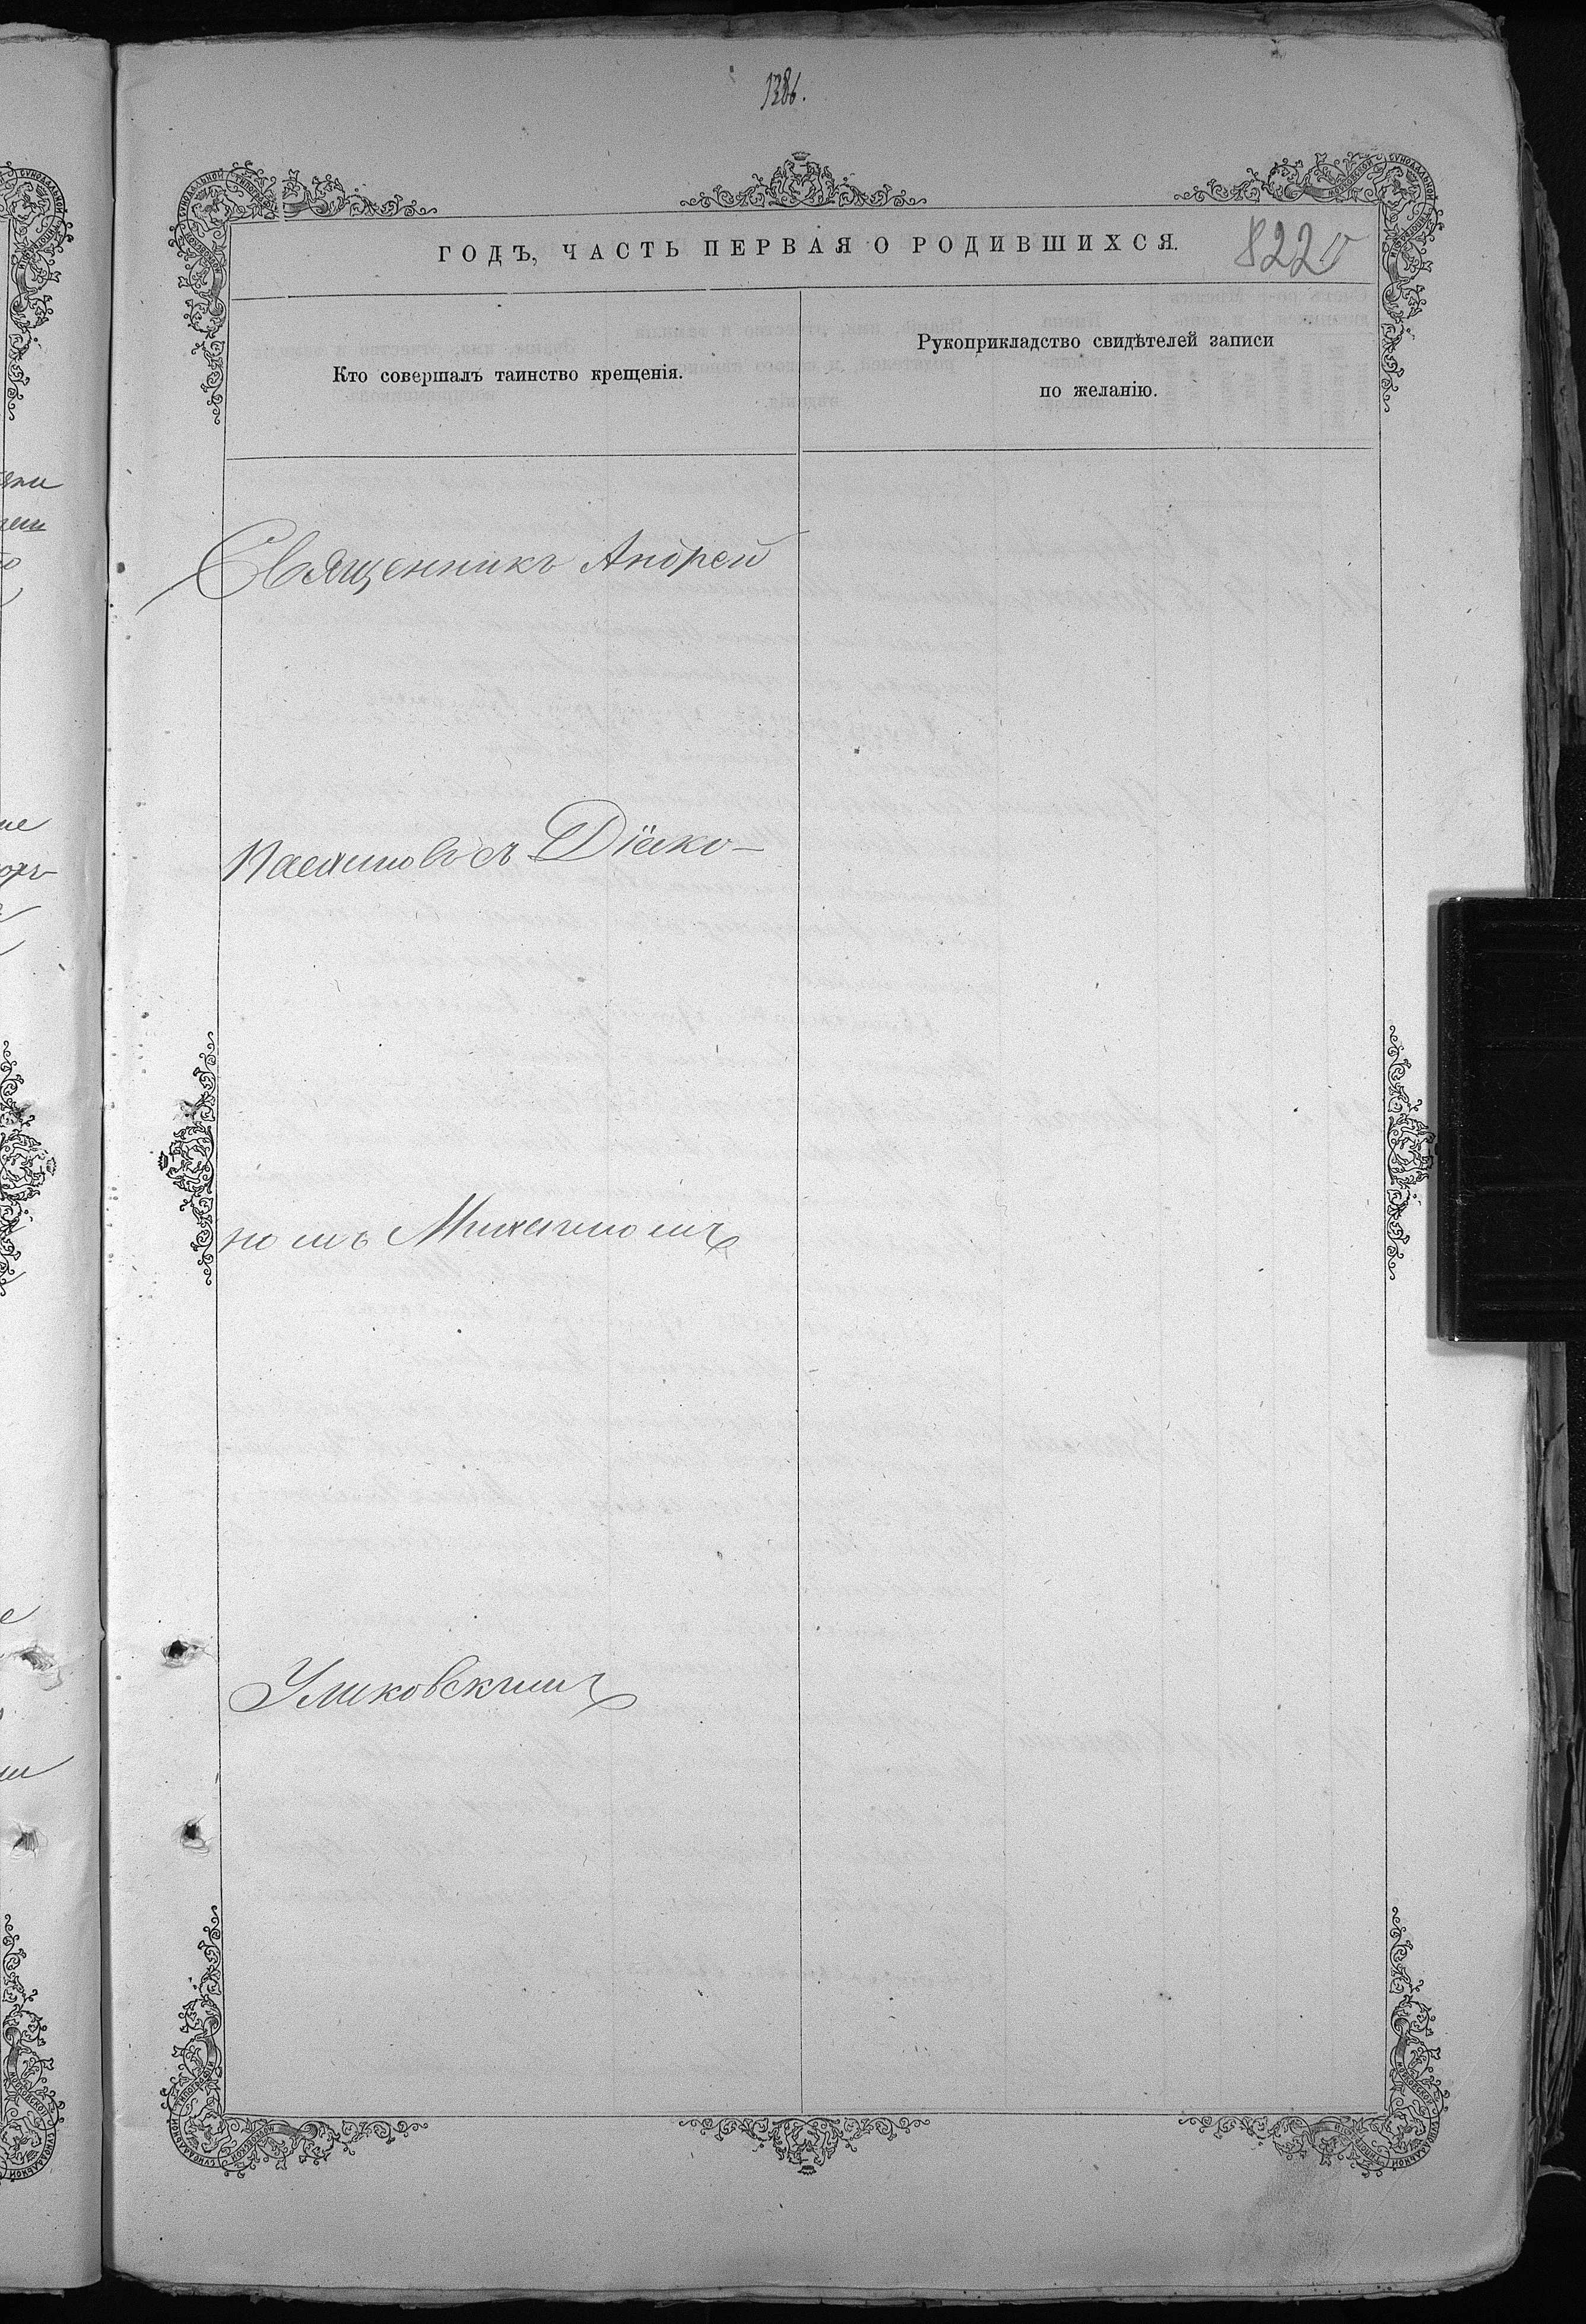 1386.
ГОДЪ, ЧАСТЬ ПЕРВАЯ О РОДИВШИХСЯ.
822
Кто совершалъ таинство крещенія.
Рукоприкладство свидѣтелей записи
по желанію.
Священникъ Андрей
съ Діако-
номъ Михаиломъ